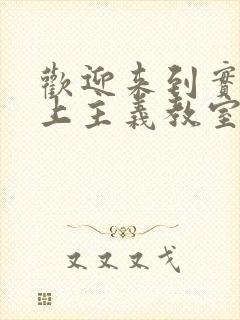 歡迎来到實
上主義教室
又又又戈